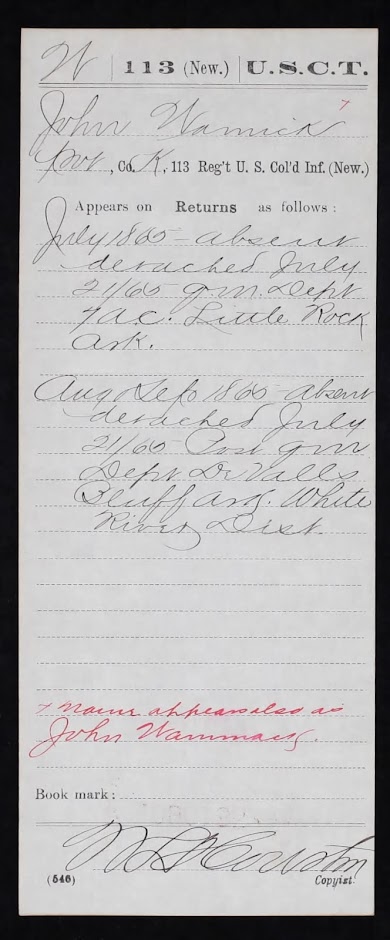 W | 113 (New.) | U.S.C.T.
+
John Warnick
Pvt, Co. K, 113 Reg't U. S. Col'd Inf. (New.)
Appears on Returns as follows:
July 1865 - absent
detached July
21/65 q.m. Dept
7 A.C. Little Rock
Ark.
Aug Sept 1865 - absent
detached July
21/65 Post q m
Dept DeValls
Bluff Ark. White
River Dist.
+ Name appears also as
John Wammack.
Book mark:
Copyist.
(546)